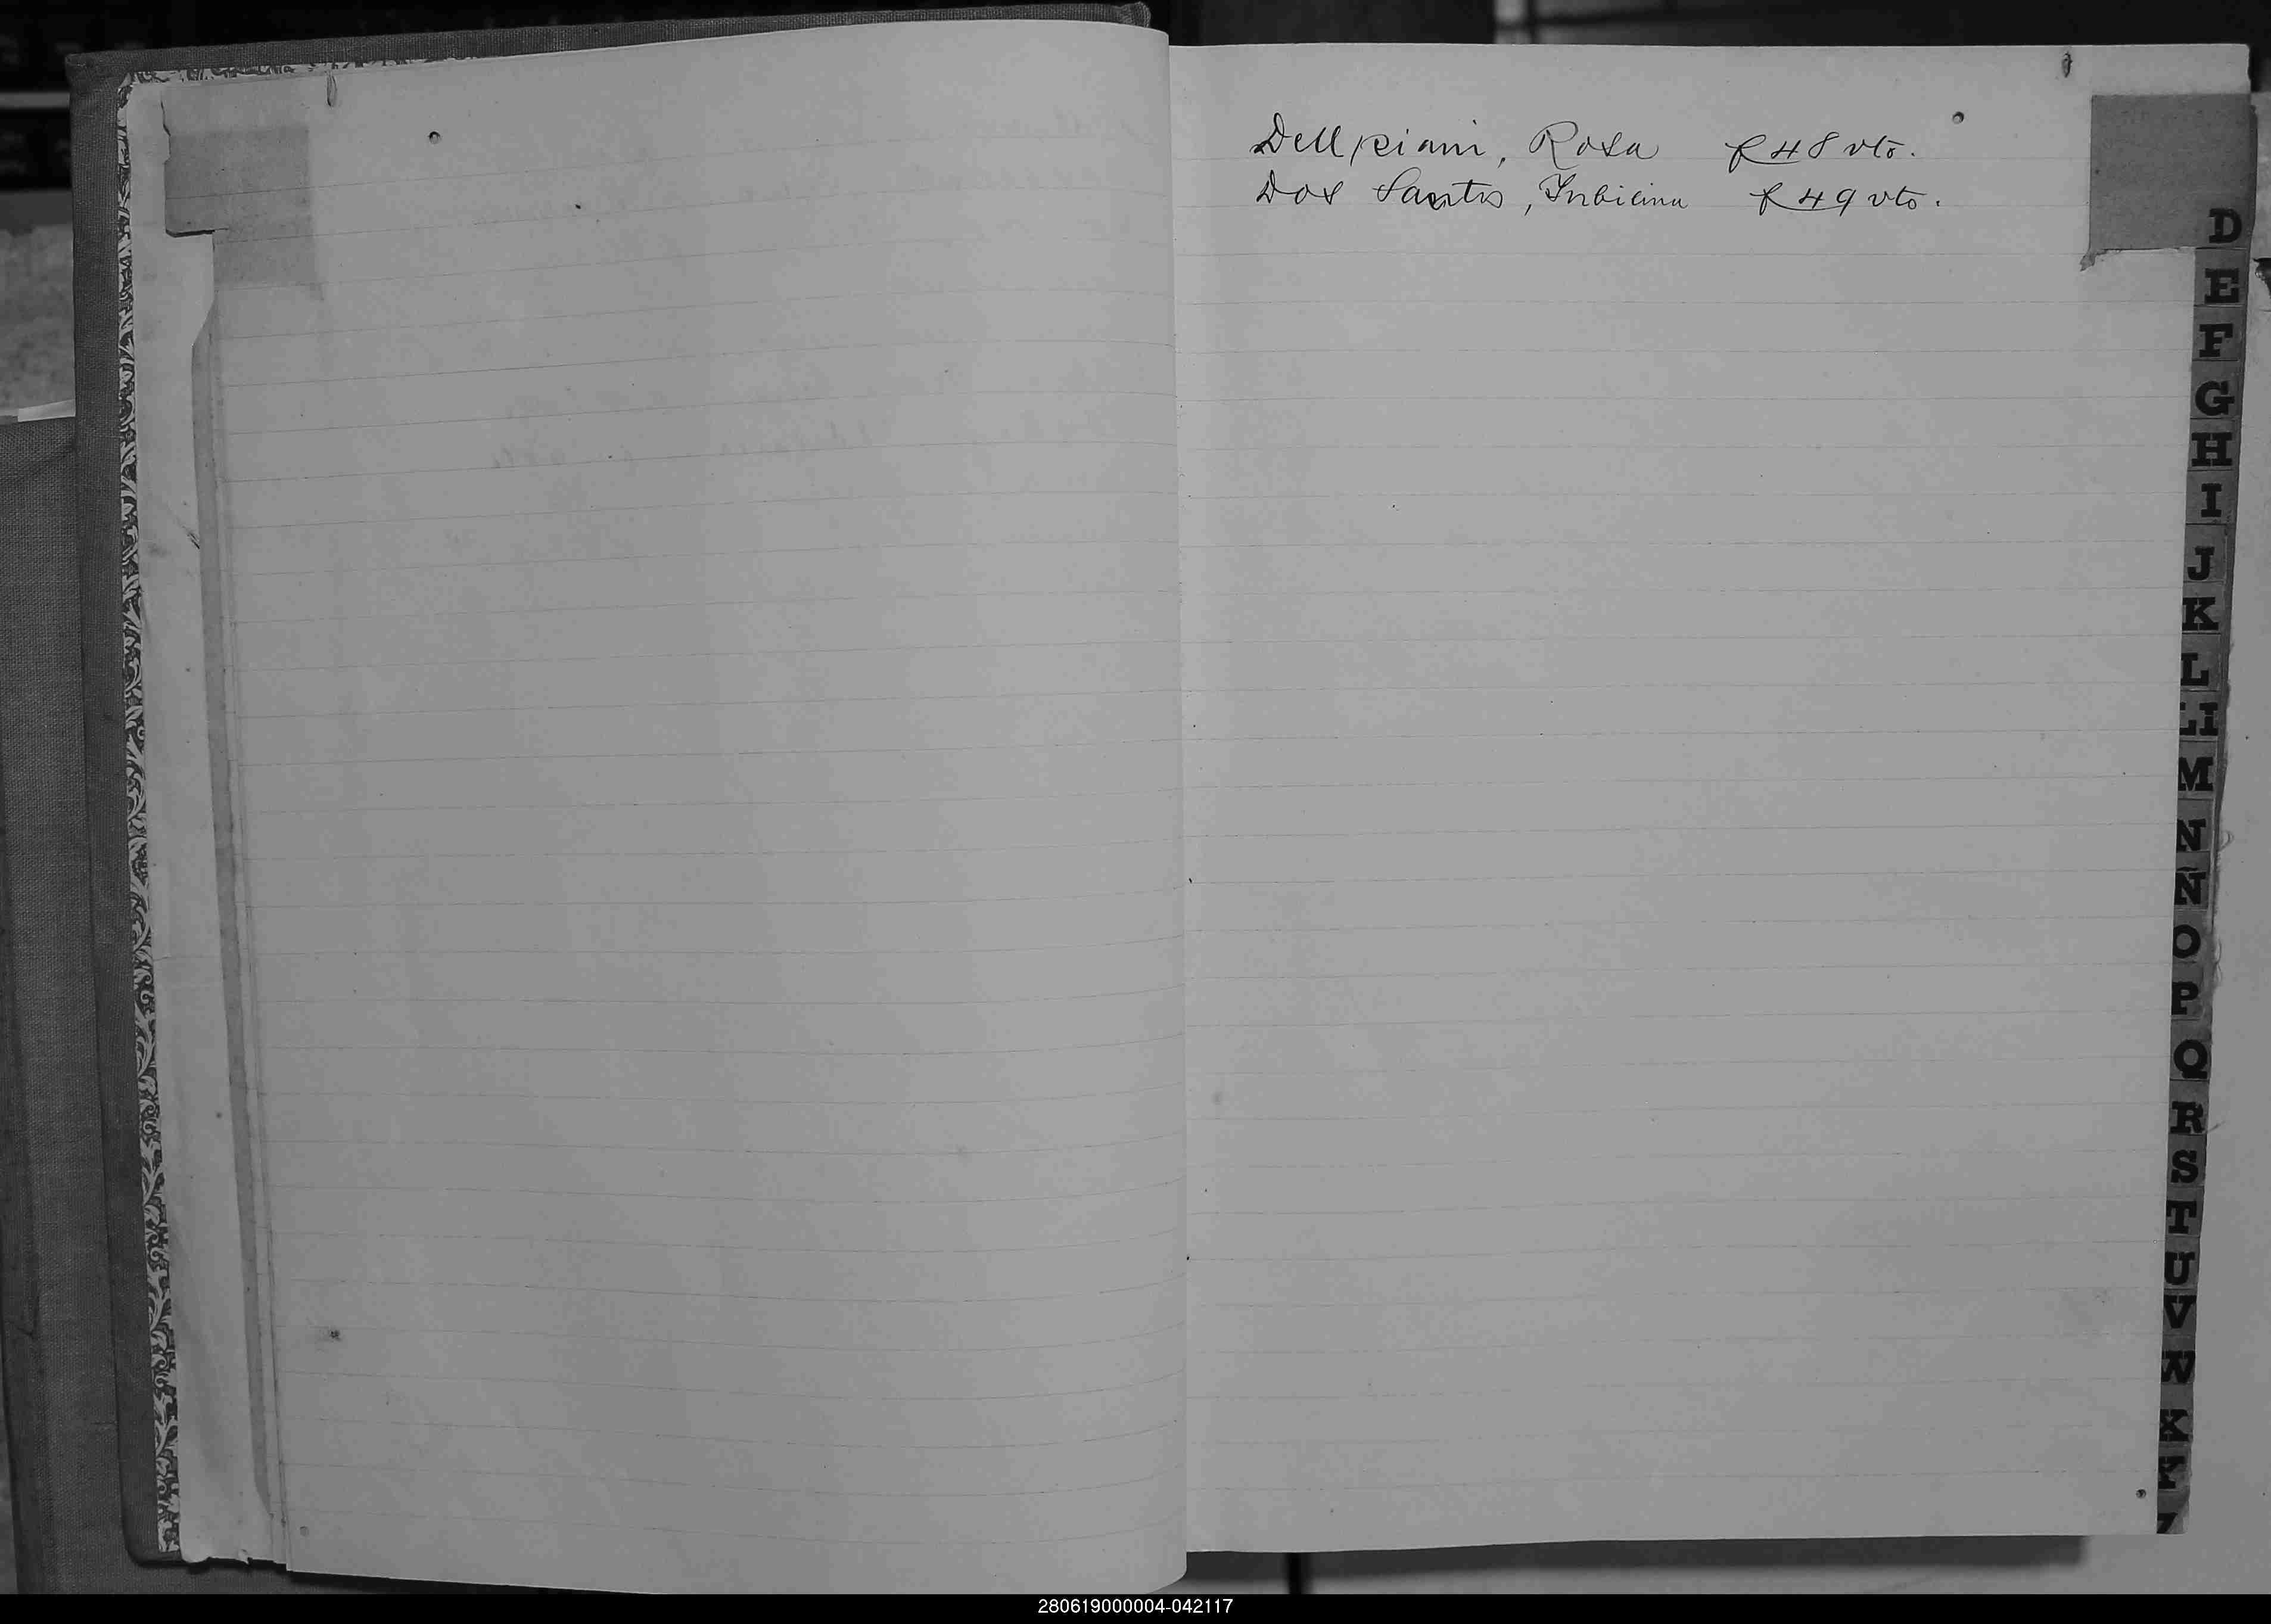 Dellpiani, Rosa f 48 vto.
Dos Santos, f 49 vto.
D
E
F
G
H
I
J
K
L
LI
M
N
Ñ
O
P
Q
R
S
T
U
V
W
X
Y
Z
280619000004-042117